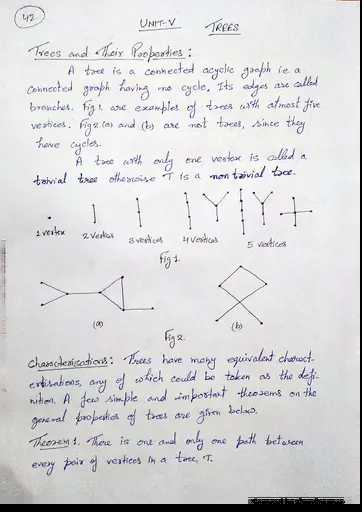 42
UNIT-V TREES
Trees and Their Properties:
A tree is a connected acyclic graph i.e a
connected graph having no cycle, Its edges are called
branches. Fig 1. are examples of trees with atmost five
vertices. Fig 2.(a) and (b) are not trees, since they
have cycles.
A tree with only one vertex is called a
trivial tree otherwise T is a non trivial tree.
1 vertex 2 vertices 3 vertices 4 vertices 5 vertices
Fig 1.
(a) (b)
Fig 2.
Characterisations: Trees have many equivalent charact-
erisations, any of which could be taken as the defi-
nition. A few simple and important theorems on the
general properties of trees are given below.
Theorem 1. There is one and only one path between
every pair of vertices in a tree, T.